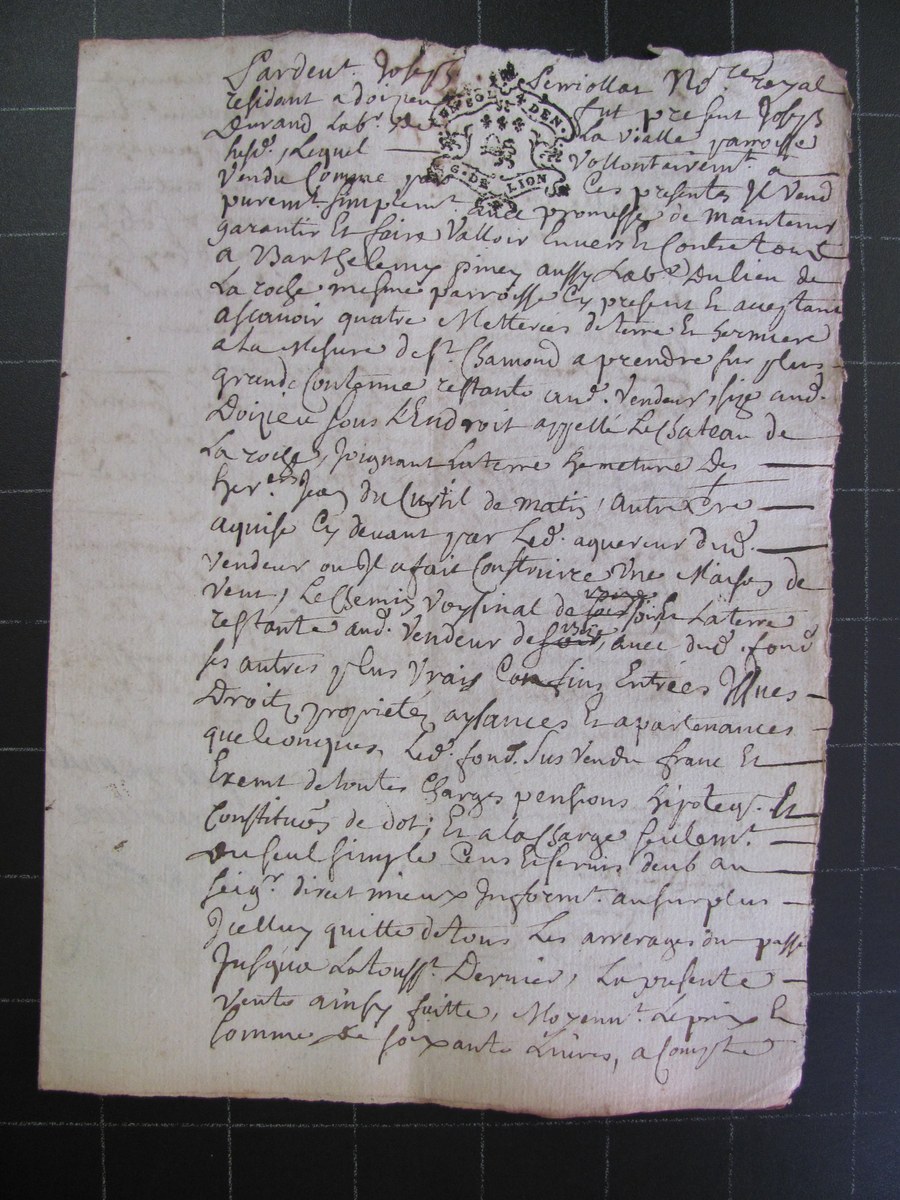 Pardent. Joseph Serriollat No.re royal
residant a doizieu fut present Joseph
Durand Lab.r de La vialle parroisse
Lequel Vollontairem.t a
Vendu Comme par Ces presentes Il Vend
purem.t simplem.t avec promesse de maintenir
garantir Et faire Valloir Envers Et Contre tous
a Barthelemy piney aussy Lab.r Du lieu de
La roche mesme parroisse Cy present Et aceptant
ascavoir quatre Metterées de terre Et hermiere
a La Mesure de St. Chamond a prendre sur plus
grande Contenue restante aud. Vendeur, size aud.
Doizieu sous L'Endroit appellé Le Chateau de
La roche, Joignant La terre hermeture des
her.ers Jean du Curtil de matin, autre t're
aquise Cy devant par Led. aquereur dud.
Vendeur ou Il a fait Construire Une Maison de
Vent, Le Chemin Voyzinal de soir La terre
restante aud. Vendeur de avec dud. fond
ses autres plus Vrais Confins Entrées Issues
Droits proprietés aysances Et apartenances
quelconques, Led. fond. sus Vendu franc Et
Exemt de toutes Charges pensions hipoteq. Et
Constituõs de dot; Et a la Charge seulem.t
Du seul simple Cens Et servis deub au
seig.r direct mieux Inform.t au surplus
Icelluy quitte de tous Les arrerages du passé
Jusqua La touss.t Dernier, La presente
Vente ainsy faitte, Moyenn.t Le prix Et
somme de soixante Livres, a Compte
GEN. DE LION